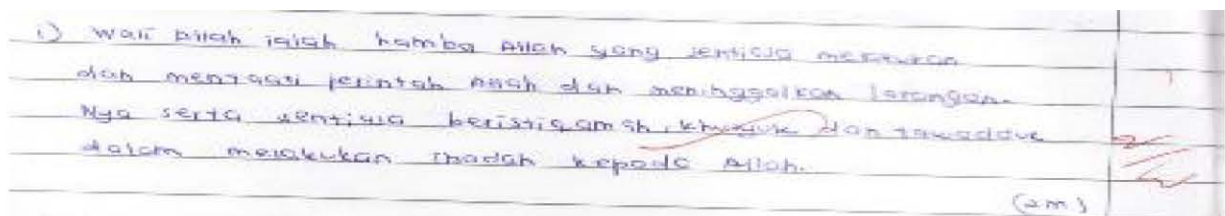 i) Wali Allah ialah hamba Allah yang sentiasa
dan mentaati perintah Allah dan meninggalkan larangan-
Nya serta sentiasa beristiqamah, khusyuk dan tawadduk
dalam melakukan ibadah kepada Allah.
(2m)